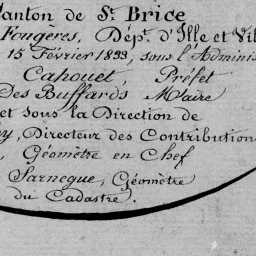 Canton de St. Brice
Fougères, Dépt. d'Ille et Vil
15 Février 1833, sous l'Adminis
Cahouet, Préfet
Des Buffards Maire
et sous la Direction de
y, Directeur des Contribution
, Géomètre en Chef
Sarnegue, Géomètre
du Cadastre.